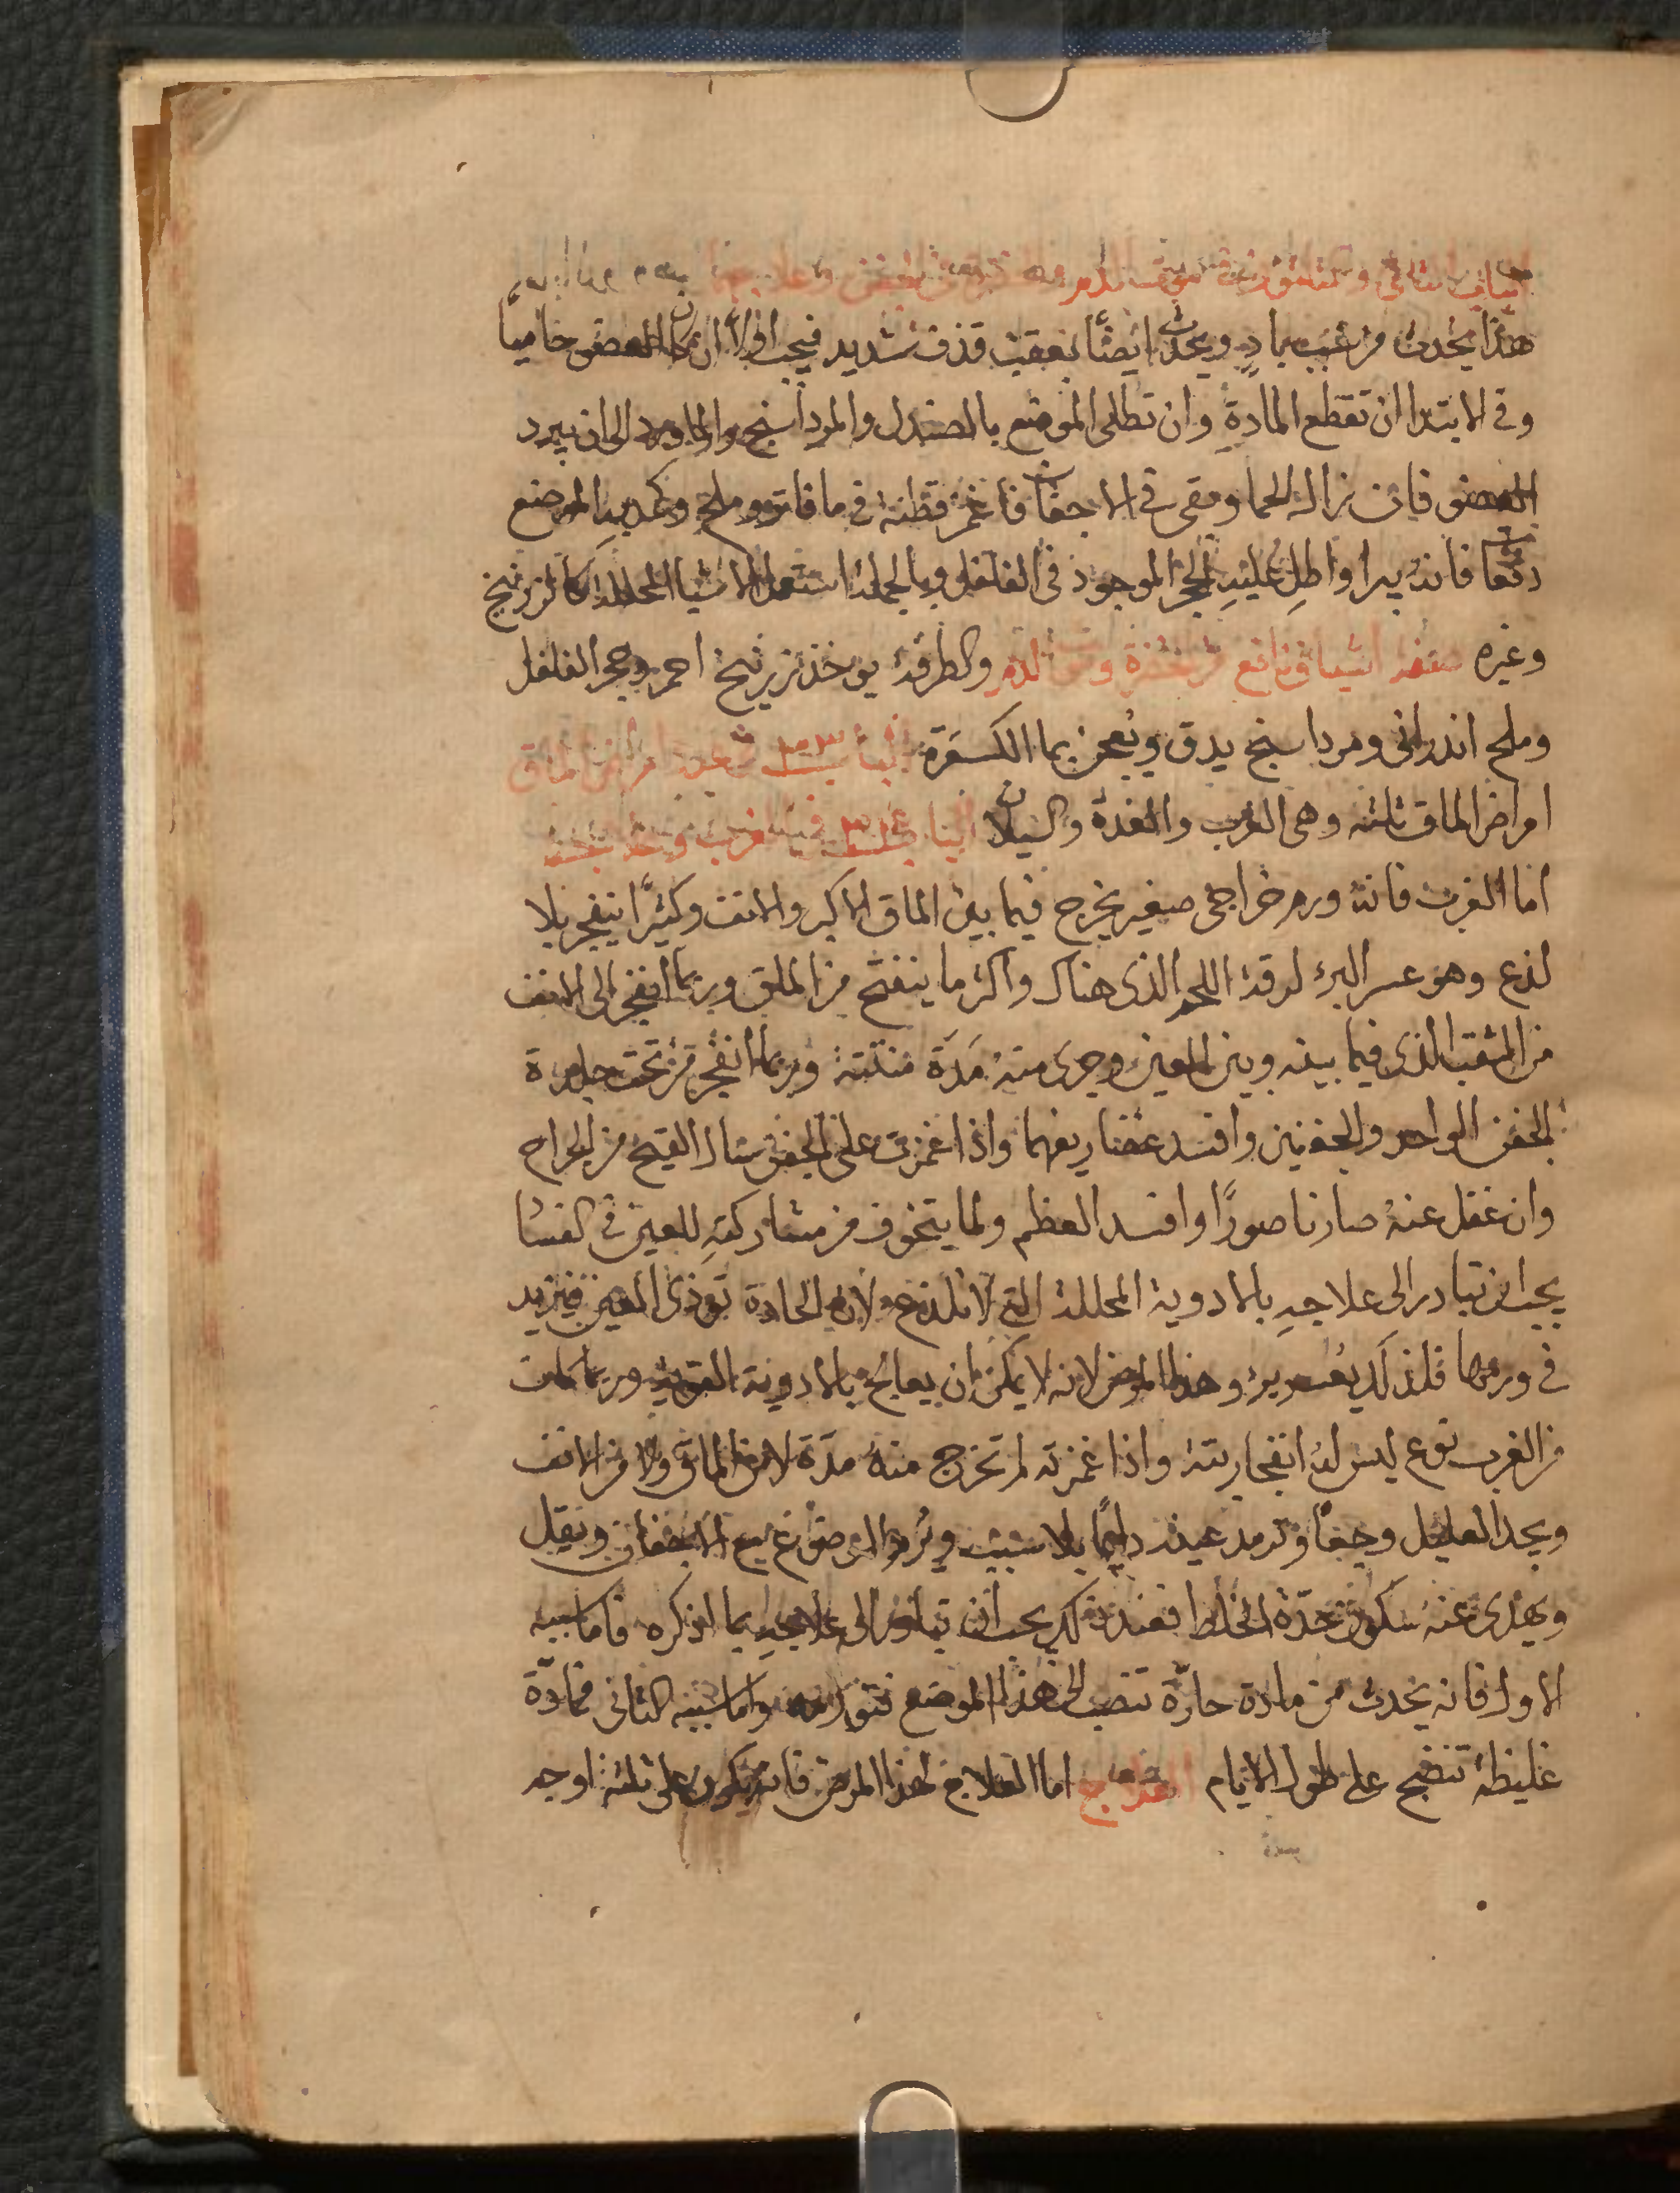 الباب الثاني و
هذا يحدث من سبب باد ويحدث ايضًا بعقب قذف شديد فيجب اولًا ان كان العضو حاميًا
وفي الابتدا ان تقطع المادة وان تطلى الموضع بالصندل والمرداسنج والماورد الى ان يبرد
العضو فان زال الحما وبقي في الاجفان فاغمس قطنة في ما فاتر وملح وكمد به الموضع
دفعا فانه يبرا واطلِ عليه الحجر الموجود في الفلفل وبالجملة استعمل الاشيا المحللة كالزرنيخ
وغيره صفة اشياف نافع من الخضرة وموت الدم والطرفة يوخذ زرنيخ احمر وحجر الفلفل
وملح اندراني ومرداسنج يدق ويُعجن بما الكسفرة الباب في عدد امراض الماق
امراض الماق ثلثه وهي الغرب والغدة والسيلان الباب في الغرب وعلاجه
اما الغرب فانه ورم خراجي صغير يخرج فيما بين الماق الاكبر والانف وكثيرًا ينفجر بلا
لذع وهو عسر البرء لرقة اللحم الذي هناك واكثر ما ينفتح من الماق وربما انفجر الى الانف
من الثقب الذي فيما بينه وبين العين وجرى منه مَدَة منتنة وربما انفجر من تحت جلدة
الجفن الواحد والجفنين وافسد غضاريفهما واذا غمزت على الجفن سال القيح من الخراج
وان غفل عنه صار ناصورًا وافسد العظم ولما يتخوف من مشاركته للعين في الفسا
يجب ان تبادر الى علاجه بالادوية المحللة التي لا تلذع ولان الحادة توذي العين فيزيد
في ورمها فلذلك يعسر برؤ هذا المرض لانه لا يمكن ان يعالج بالادوية القوية وربما كانت
من الغرب نوع ليس له انفجار بتة واذا غمزته لم تخرج منه مدة لا من الماق ولا من الانف
ويجد العليل وجعًا وترمد عينه دايمًا بلا سبب ويرم الموضع مع الاجفان ويقل
ويهدى عنه سكون حدّة الخلط فعند ذلك يجب ان تبادر الى علاجه بما اذكره فاما سببه
الاول فانه يحدث من مادة حارّة تنصب الى هذا الموضع فتورمه واما سببه الثاني فمادّة
غليظة تنضج على طول الايام العلاج اما العلاج لهذا المرض فانه يكون على ثلثة اوجه